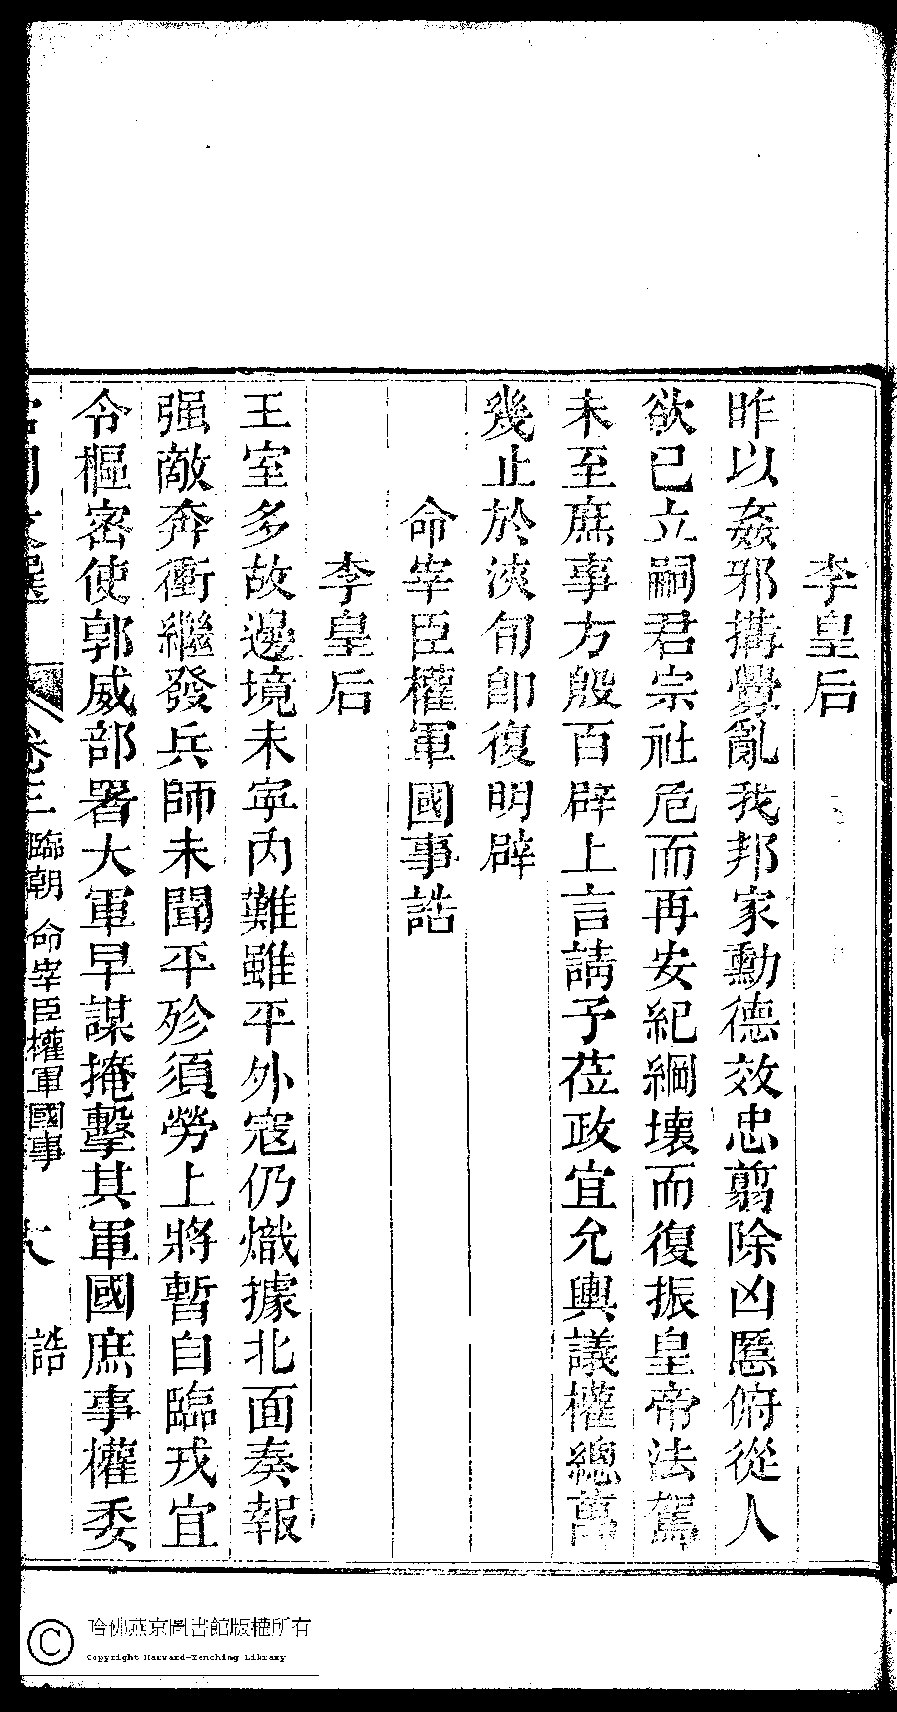 李皇后
昨以姦邪搆釁亂我邦家勳德效忠翦除凶慝俯從人
欲已立嗣君宗社危而再安紀綱壞而復振皇帝法駕
未至庶事方殷百辟上言請予莅政宜允輿議權總萬
幾止於浹旬卽復明辟
命宰臣權軍國事誥
李皇后
王室多故邊境未寜內難雖平外寇仍熾據北面奏報
强敵奔衝繼發兵師未聞平殄須勞上將暫自臨戎宜
令樞密使郭威部署大軍早謀掩擊其軍國庶事權委
宮閨文選 卷三 臨朝 命宰臣權軍國事 誥
哈佛燕京圖書館版權所有
Copyright Harvard-Yenching Library